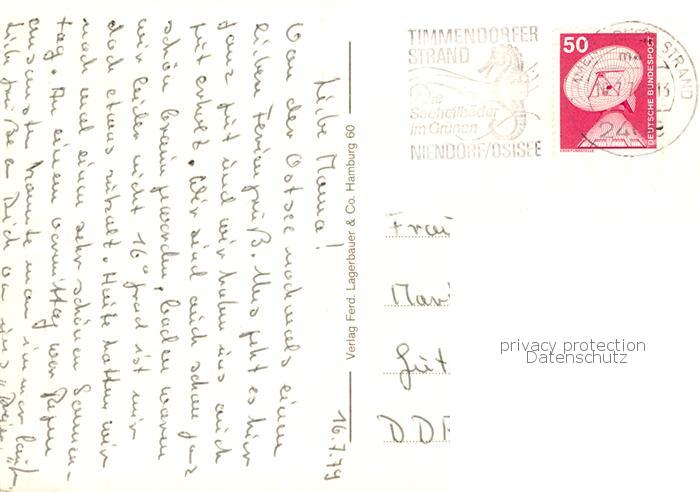 16.7.79
Liebe Mama!
Von der Ostsee nochmals einen
lieben Feriengruß. Uns geht es hier
ganz gut und wir haben uns auch
gut erholt. Wir sind auch schon ganz
schön braun geworden, baden waren
wir leider nicht 16° grad ist mir
doch etwas zu kalt. Heute hatten wir
noch mal einen sehr schönen Sonnen-
tag. An einem vormittag war Regen
ansonsten konnte man immer lauf.
Dich grüßen
Verlag Ferd. Lagerbauer & Co. Hamburg 60
TIMMENDORFER
STRAND
Die
Seeheilbäder
im Grünen
NIENDORF/OSTSEE
50
DEUTSCHE BUNDESPOST
ERDEFUNKSTELLE
STRAND
Frau
Mari
Güt
DDR
privacy protection
Datenschutz